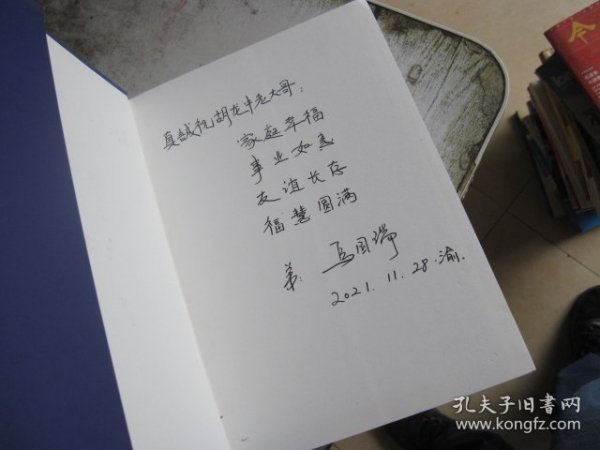 真诚祝胡龙中老大哥：
家庭幸福
事业如意
友谊长存
福慧圆满
弟：马国瑞
2021.11.28.渝.
今
孔夫子旧书网
www.kongfz.com